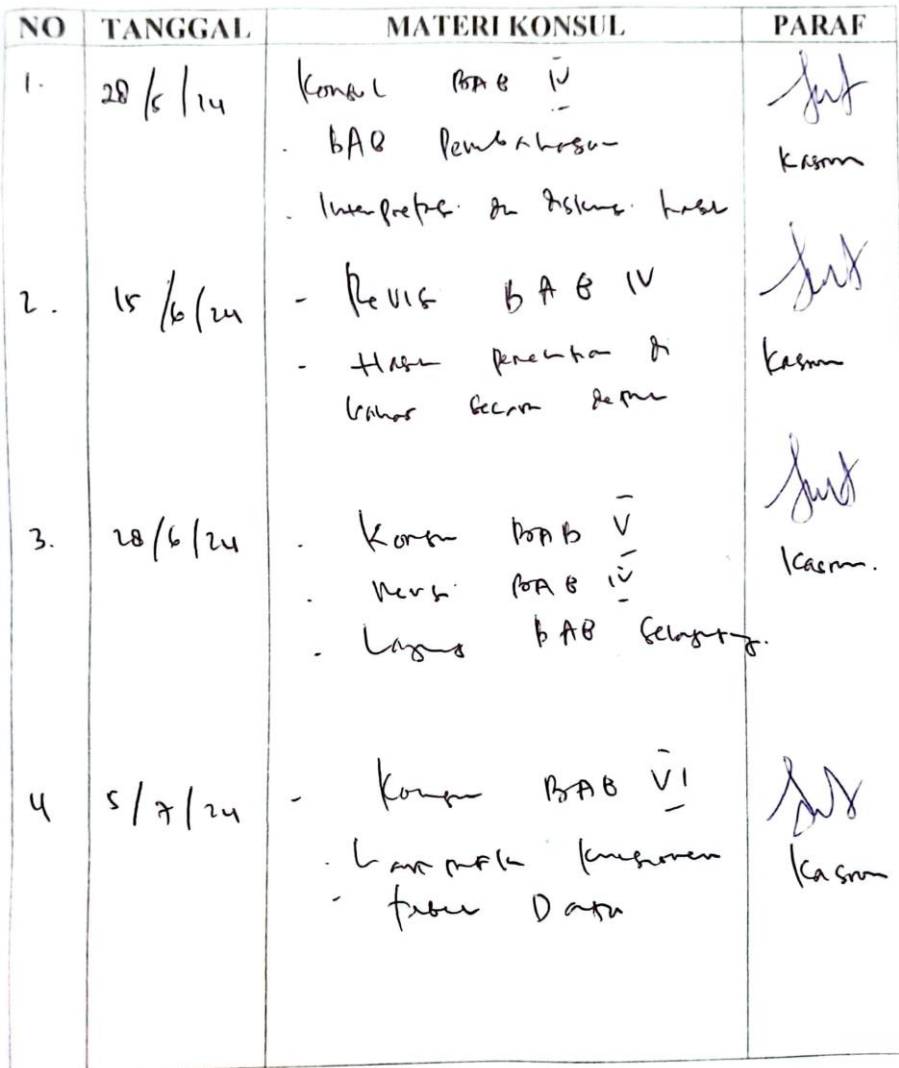 NO TANGGAL MATERI KONSUL PARAF
1. 28/5/24 Konsul BAB IV
. BAB Pembahasan
Kasmu
. Interpretasi dan diskusi hasil
2. 15/6/24 - Revisi BAB IV
- Hasil penelitian di
bahas secara
3. 28/6/24 . Konsul BAB V
. Revisi BAB IV
. BAB Selanjutnya.
4 5/7/24 - Konsul BAB VI
. Lampirkan Kuesioner
- Data